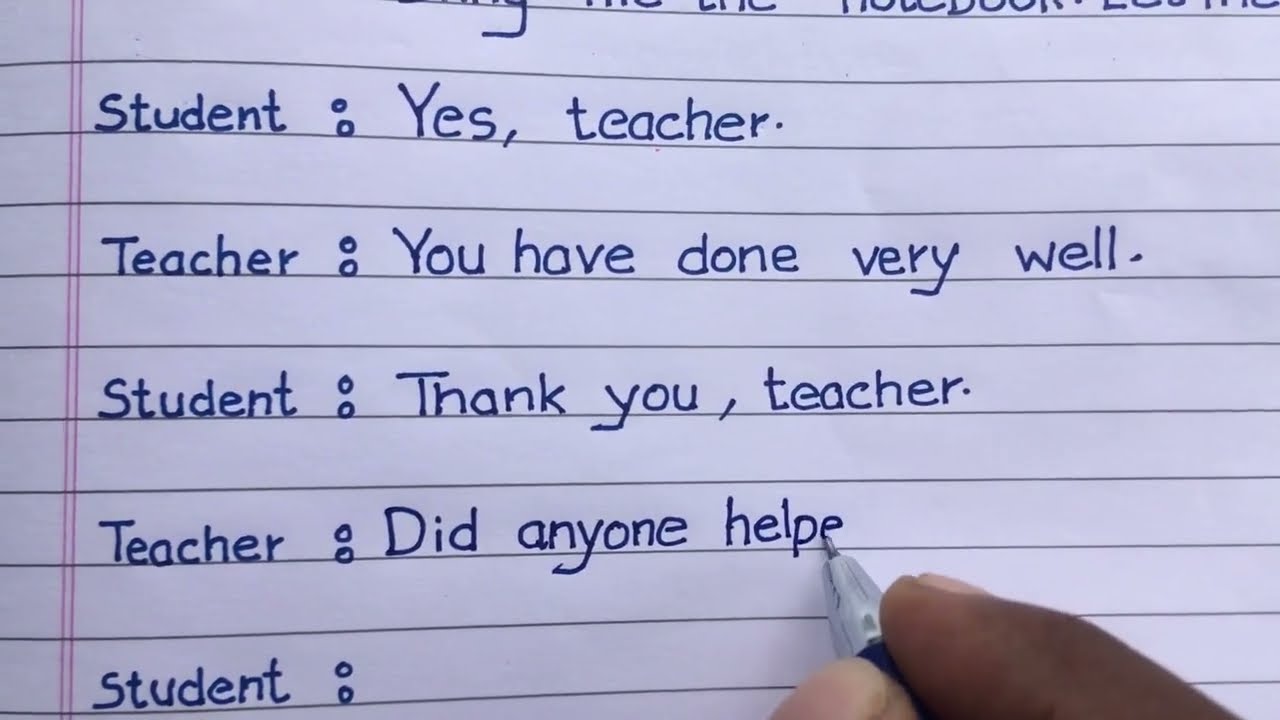 the notebook. Let me
Student : Yes, teacher.
Teacher : You have done very well.
Student : Thank you, teacher.
Teacher : Did anyone helpe
Student :